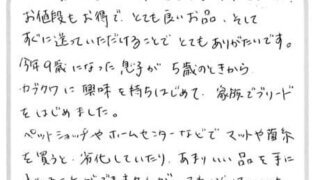 お値段もお得で、とても良いお品、そして
すぐに送っていただけることでとてもありがたいです。
今年9歳になった息子が5歳のときから
カブクワに興味を持ちはじめて、家族でブリード
をはじめました。
ペットショップやホームセンターなどでマットや菌糸
を買うと、劣化していたり、あまりいい品を手に